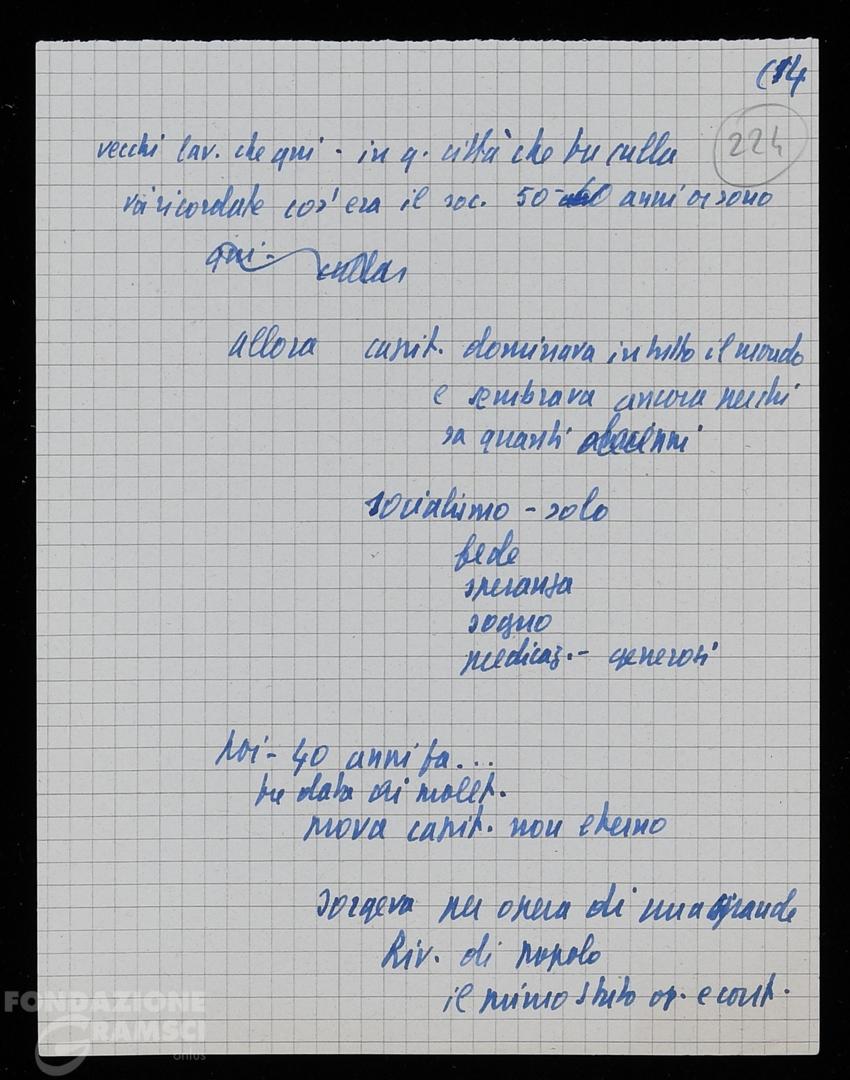 (14
224
vecchi lav. che qui - in q. città che fu culla
voi ricordate cos' era il soc. 50-60 anni or sono
qui - culla
allora capit. dominava in tutto il mondo
e sembrava ancora perchi
sa quanti decenni
socialismo - solo
fede
speranza
sogno
predicaz. - generosi
Poi - 40 anni fa...
fu data ai prolet.
prova capit. non eterno
sorgeva per opera di una grande
Riv. di popolo
il primo stato op. e cont.
FONDAZIONE
GRAMSCI
onlus